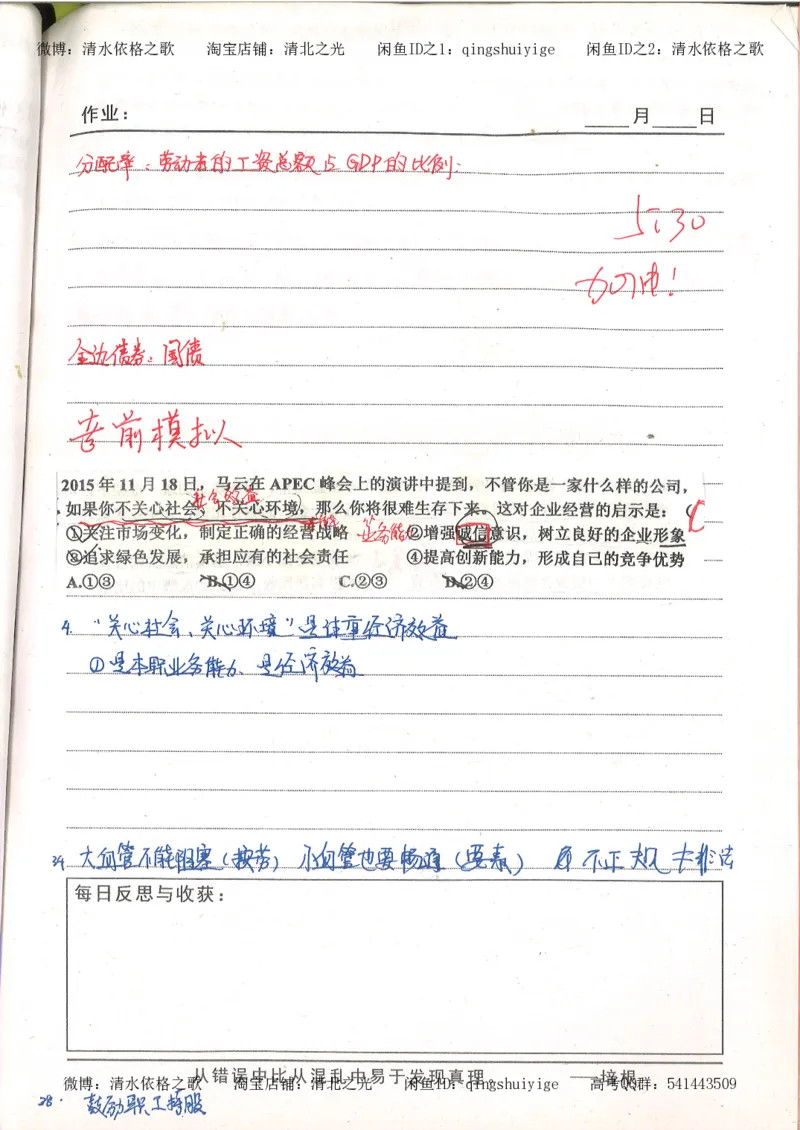 微博：清水依格之歌 淘宝店铺：清北之光 闲鱼ID之1：qingshuiyige 闲鱼ID之2：清水依格之歌
作业： ____月____日
分配率：劳动者的工资总额占GDP的比例.
5:30
加油！
金边债券：国债
考前模拟
2015年11月18日，马云在APEC峰会上的演讲中提到，不管你是一家什么样的公司，
社会效益
如果你不关心社会，不关心环境，那么你将很难生存下来。这对企业经营的启示是：（ C
①关注市场变化，制定正确的经营战略 业务能 ②增强诚信意识，树立良好的企业形象
③追求绿色发展，承担应有的社会责任 ④提高创新能力，形成自己的竞争优势
A.①③ B.①④ C.②③ D.②④
4. “关心社会、关心环境”是体重经济效益
①是本职业务能力、是经济效益
34 大血管不能阻塞（按劳） 小血管也要畅通（要素） 不正规 非法
每日反思与收获：
从错误中比从混乱中易于发现真理。 ——培根
微博：清水依格之歌 淘宝店铺：清北之光 闲鱼ID：qingshuiyige 高考QQ群：541443509
28. 鼓励职工持股